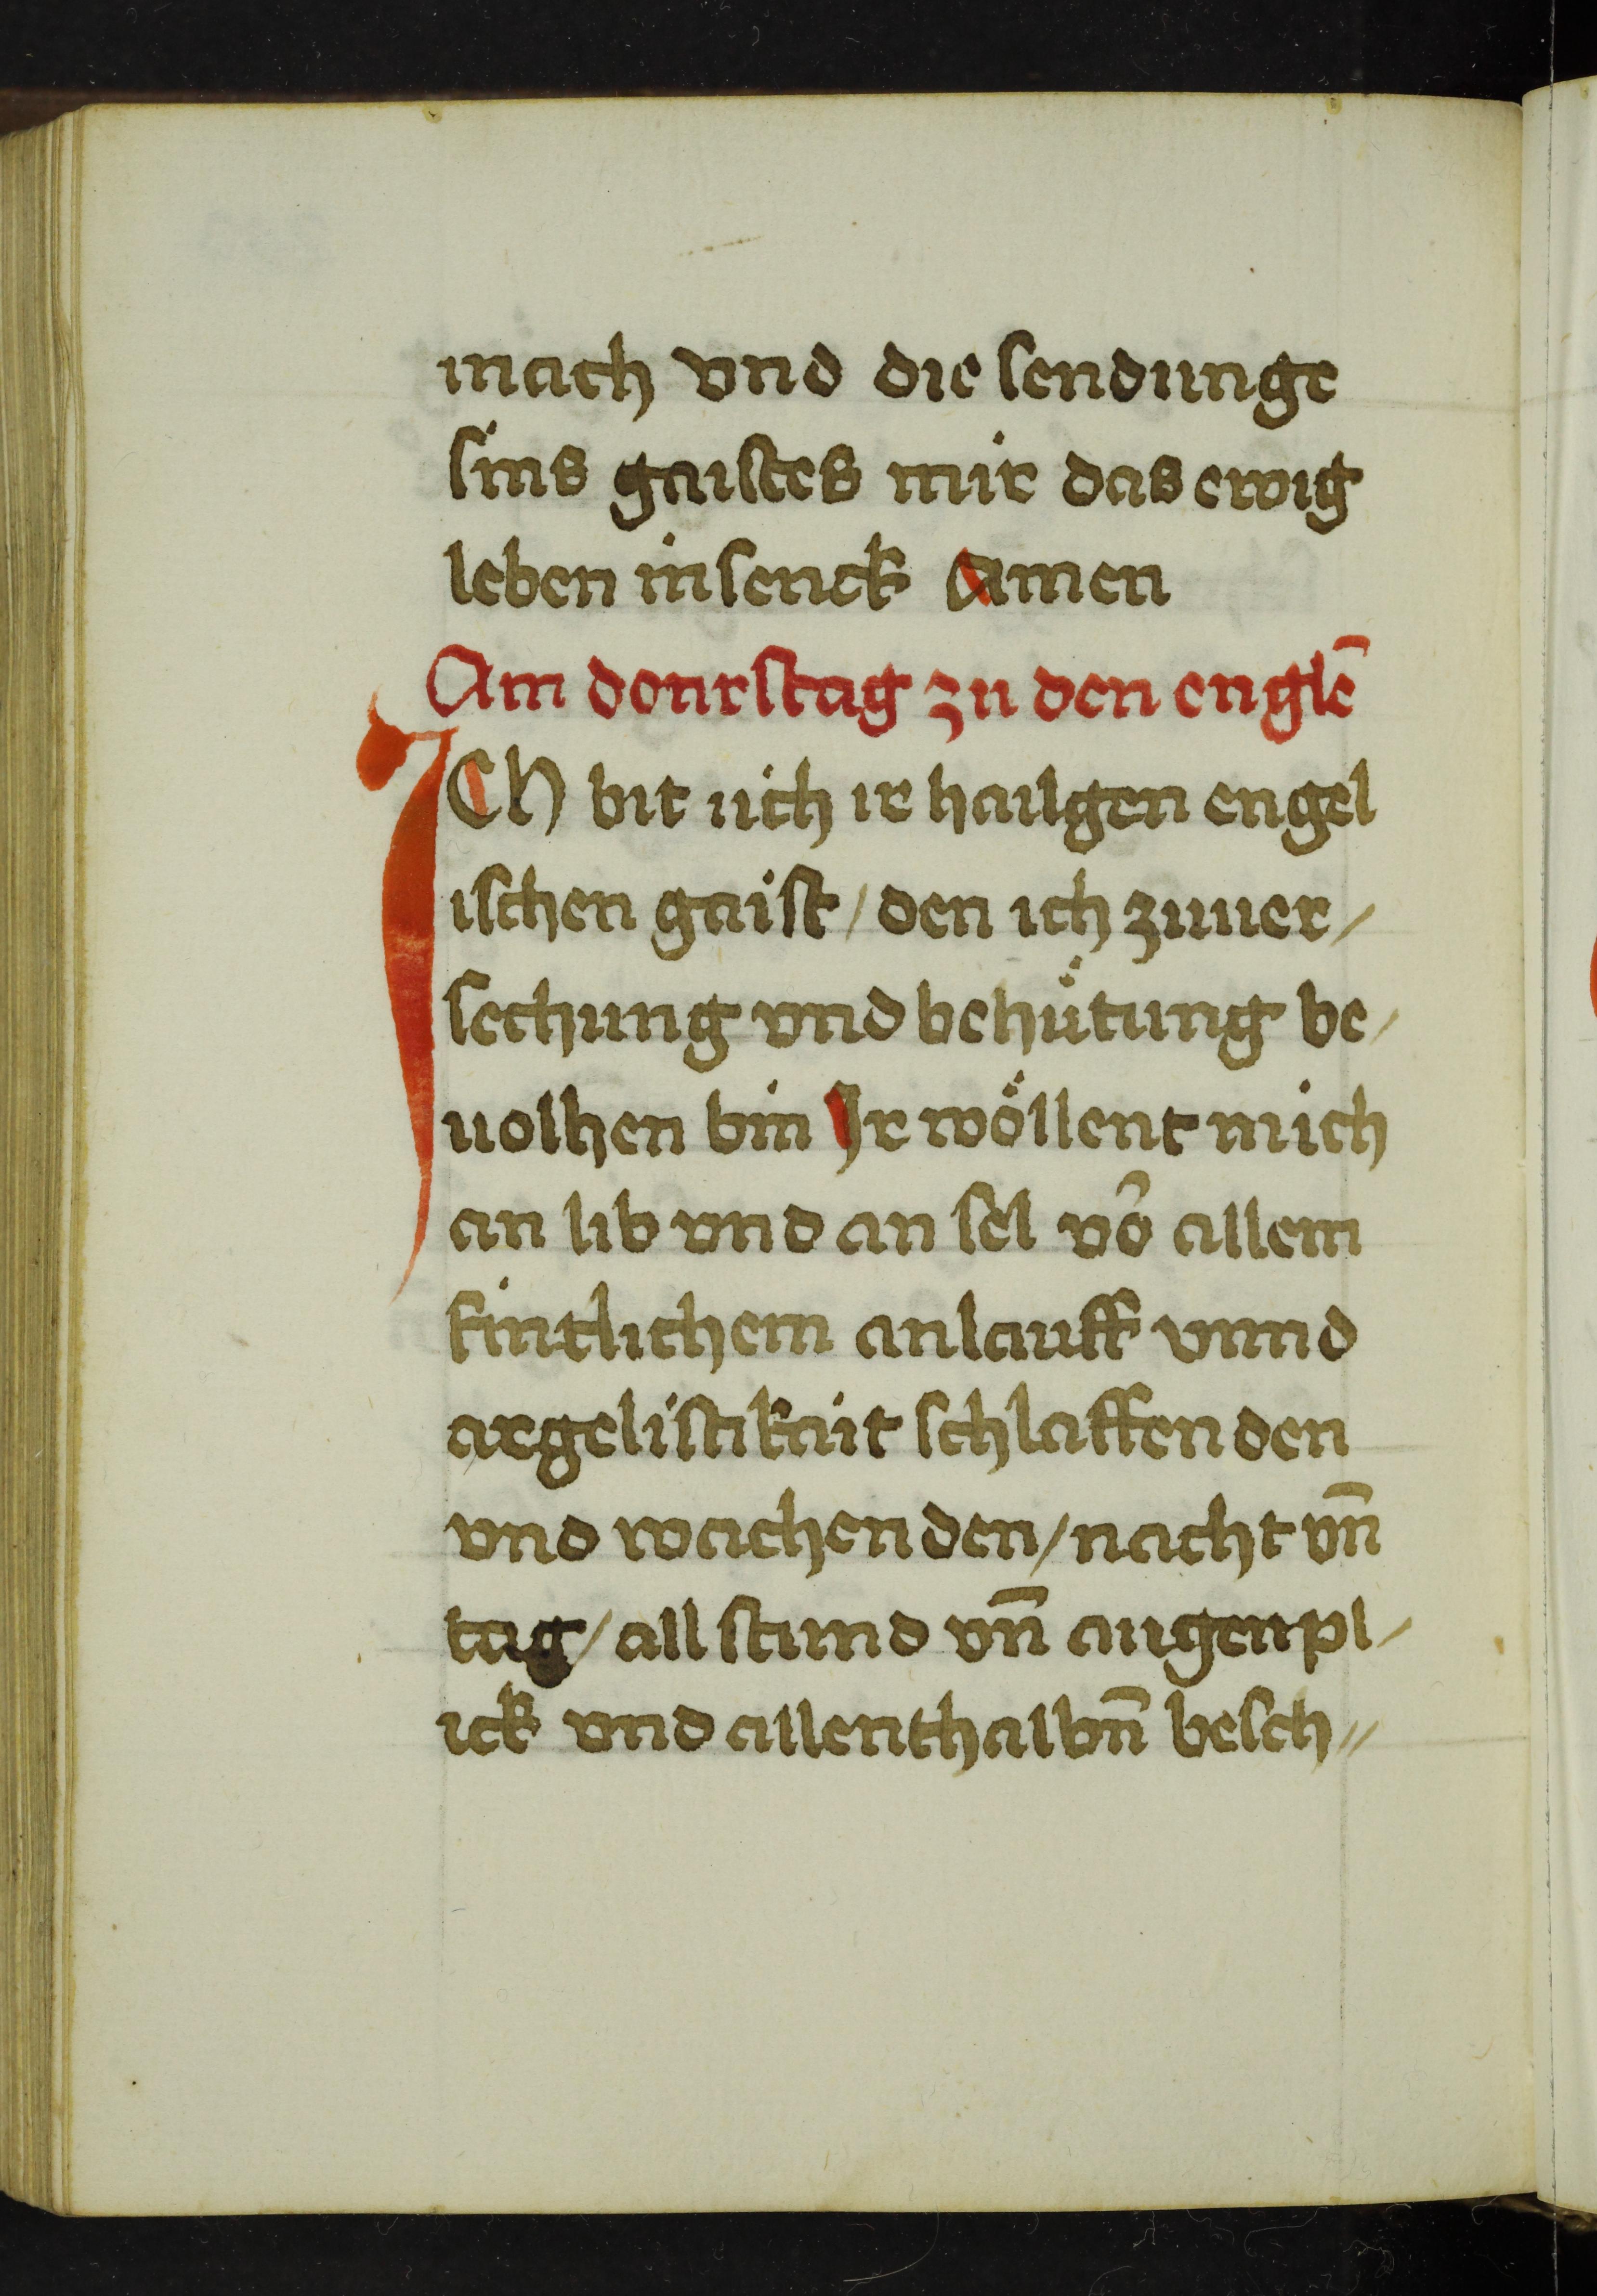 mach vnd die sendunge
sins gaistes mir das ewig
leben insenck Amen
Am donrstag zu den englē
ICh bit uch ir hailgen engel
ischen gaist / den ich zuuer /
sechung vnd behütung be /
uolhen bin Ir wöllent mich
an lib vnd an sel vō allem
fintlichem anlauff vnnd
argelistikait schlaffenden
vnd wachenden / nacht vn̄
tag / all stund vn̄ augenpl /
ick vnd allenthalbn̄ besch //